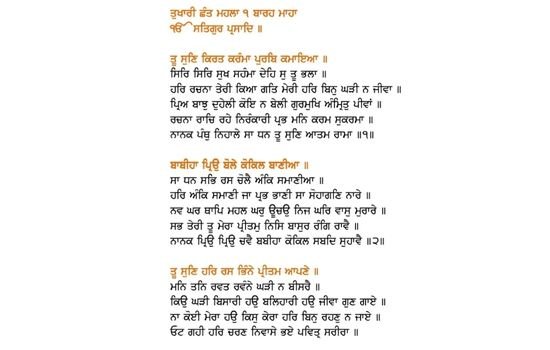 ਤੁਖਾਰੀ ਛੰਤ ਮਹਲਾ ੧ ਬਾਰਹ ਮਾਹਾ
ੴ ਸਤਿਗੁਰ ਪ੍ਰਸਾਦਿ ॥
ਤੂ ਸੁਣਿ ਕਿਰਤ ਕਰੰਮਾ ਪੁਰਬਿ ਕਮਾਇਆ ॥
ਸਿਰਿ ਸਿਰਿ ਸੁਖ ਸਹੰਮਾ ਦੇਹਿ ਸੁ ਤੂ ਭਲਾ ॥
ਹਰਿ ਰਚਨਾ ਤੇਰੀ ਕਿਆ ਗਤਿ ਮੇਰੀ ਹਰਿ ਬਿਨੁ ਘੜੀ ਨ ਜੀਵਾ ॥
ਪ੍ਰਿਅ ਬਾਝੁ ਦੁਹੇਲੀ ਕੋਇ ਨ ਬੇਲੀ ਗੁਰਮੁਖਿ ਅੰਮ੍ਰਿਤੁ ਪੀਵਾਂ ॥
ਰਚਨਾ ਰਾਚਿ ਰਹੇ ਨਿਰੰਕਾਰੀ ਪ੍ਰਭ ਮਨਿ ਕਰਮ ਸੁਕਰਮਾ ॥
ਨਾਨਕ ਪੰਥੁ ਨਿਹਾਲੇ ਸਾ ਧਨ ਤੂ ਸੁਣਿ ਆਤਮ ਰਾਮਾ ॥੧॥
ਬਾਬੀਹਾ ਪ੍ਰਿਉ ਬੋਲੇ ਕੋਕਿਲ ਬਾਣੀਆ ॥
ਸਾ ਧਨ ਸਭਿ ਰਸ ਚੋਲੈ ਅੰਕਿ ਸਮਾਣੀਆ ॥
ਹਰਿ ਅੰਕਿ ਸਮਾਣੀ ਜਾ ਪ੍ਰਭ ਭਾਣੀ ਸਾ ਸੋਹਾਗਣਿ ਨਾਰੇ ॥
ਨਵ ਘਰ ਥਾਪਿ ਮਹਲ ਘਰੁ ਊਚਉ ਨਿਜ ਘਰਿ ਵਾਸੁ ਮੁਰਾਰੇ ॥
ਸਭ ਤੇਰੀ ਤੂ ਮੇਰਾ ਪ੍ਰੀਤਮੁ ਨਿਸਿ ਬਾਸੁਰ ਰੰਗਿ ਰਾਵੈ ॥
ਨਾਨਕ ਪ੍ਰਿਉ ਪ੍ਰਿਉ ਚਵੈ ਬਬੀਹਾ ਕੋਕਿਲ ਸਬਦਿ ਸੁਹਾਵੈ ॥੨॥
ਤੂ ਸੁਣਿ ਹਰਿ ਰਸ ਭਿੰਨੇ ਪ੍ਰੀਤਮ ਆਪਣੇ ॥
ਮਨਿ ਤਨਿ ਰਵਤ ਰਵੰਨੇ ਘੜੀ ਨ ਬੀਸਰੈ ॥
ਕਿਉ ਘੜੀ ਬਿਸਾਰੀ ਹਉ ਬਲਿਹਾਰੀ ਹਉ ਜੀਵਾ ਗੁਣ ਗਾਏ ॥
ਨਾ ਕੋਈ ਮੇਰਾ ਹਉ ਕਿਸੁ ਕੇਰਾ ਹਰਿ ਬਿਨੁ ਰਹਣੁ ਨ ਜਾਏ ॥
ਓਟ ਗਹੀ ਹਰਿ ਚਰਣ ਨਿਵਾਸੇ ਭਏ ਪਵਿਤ੍ਰ ਸਰੀਰਾ ॥